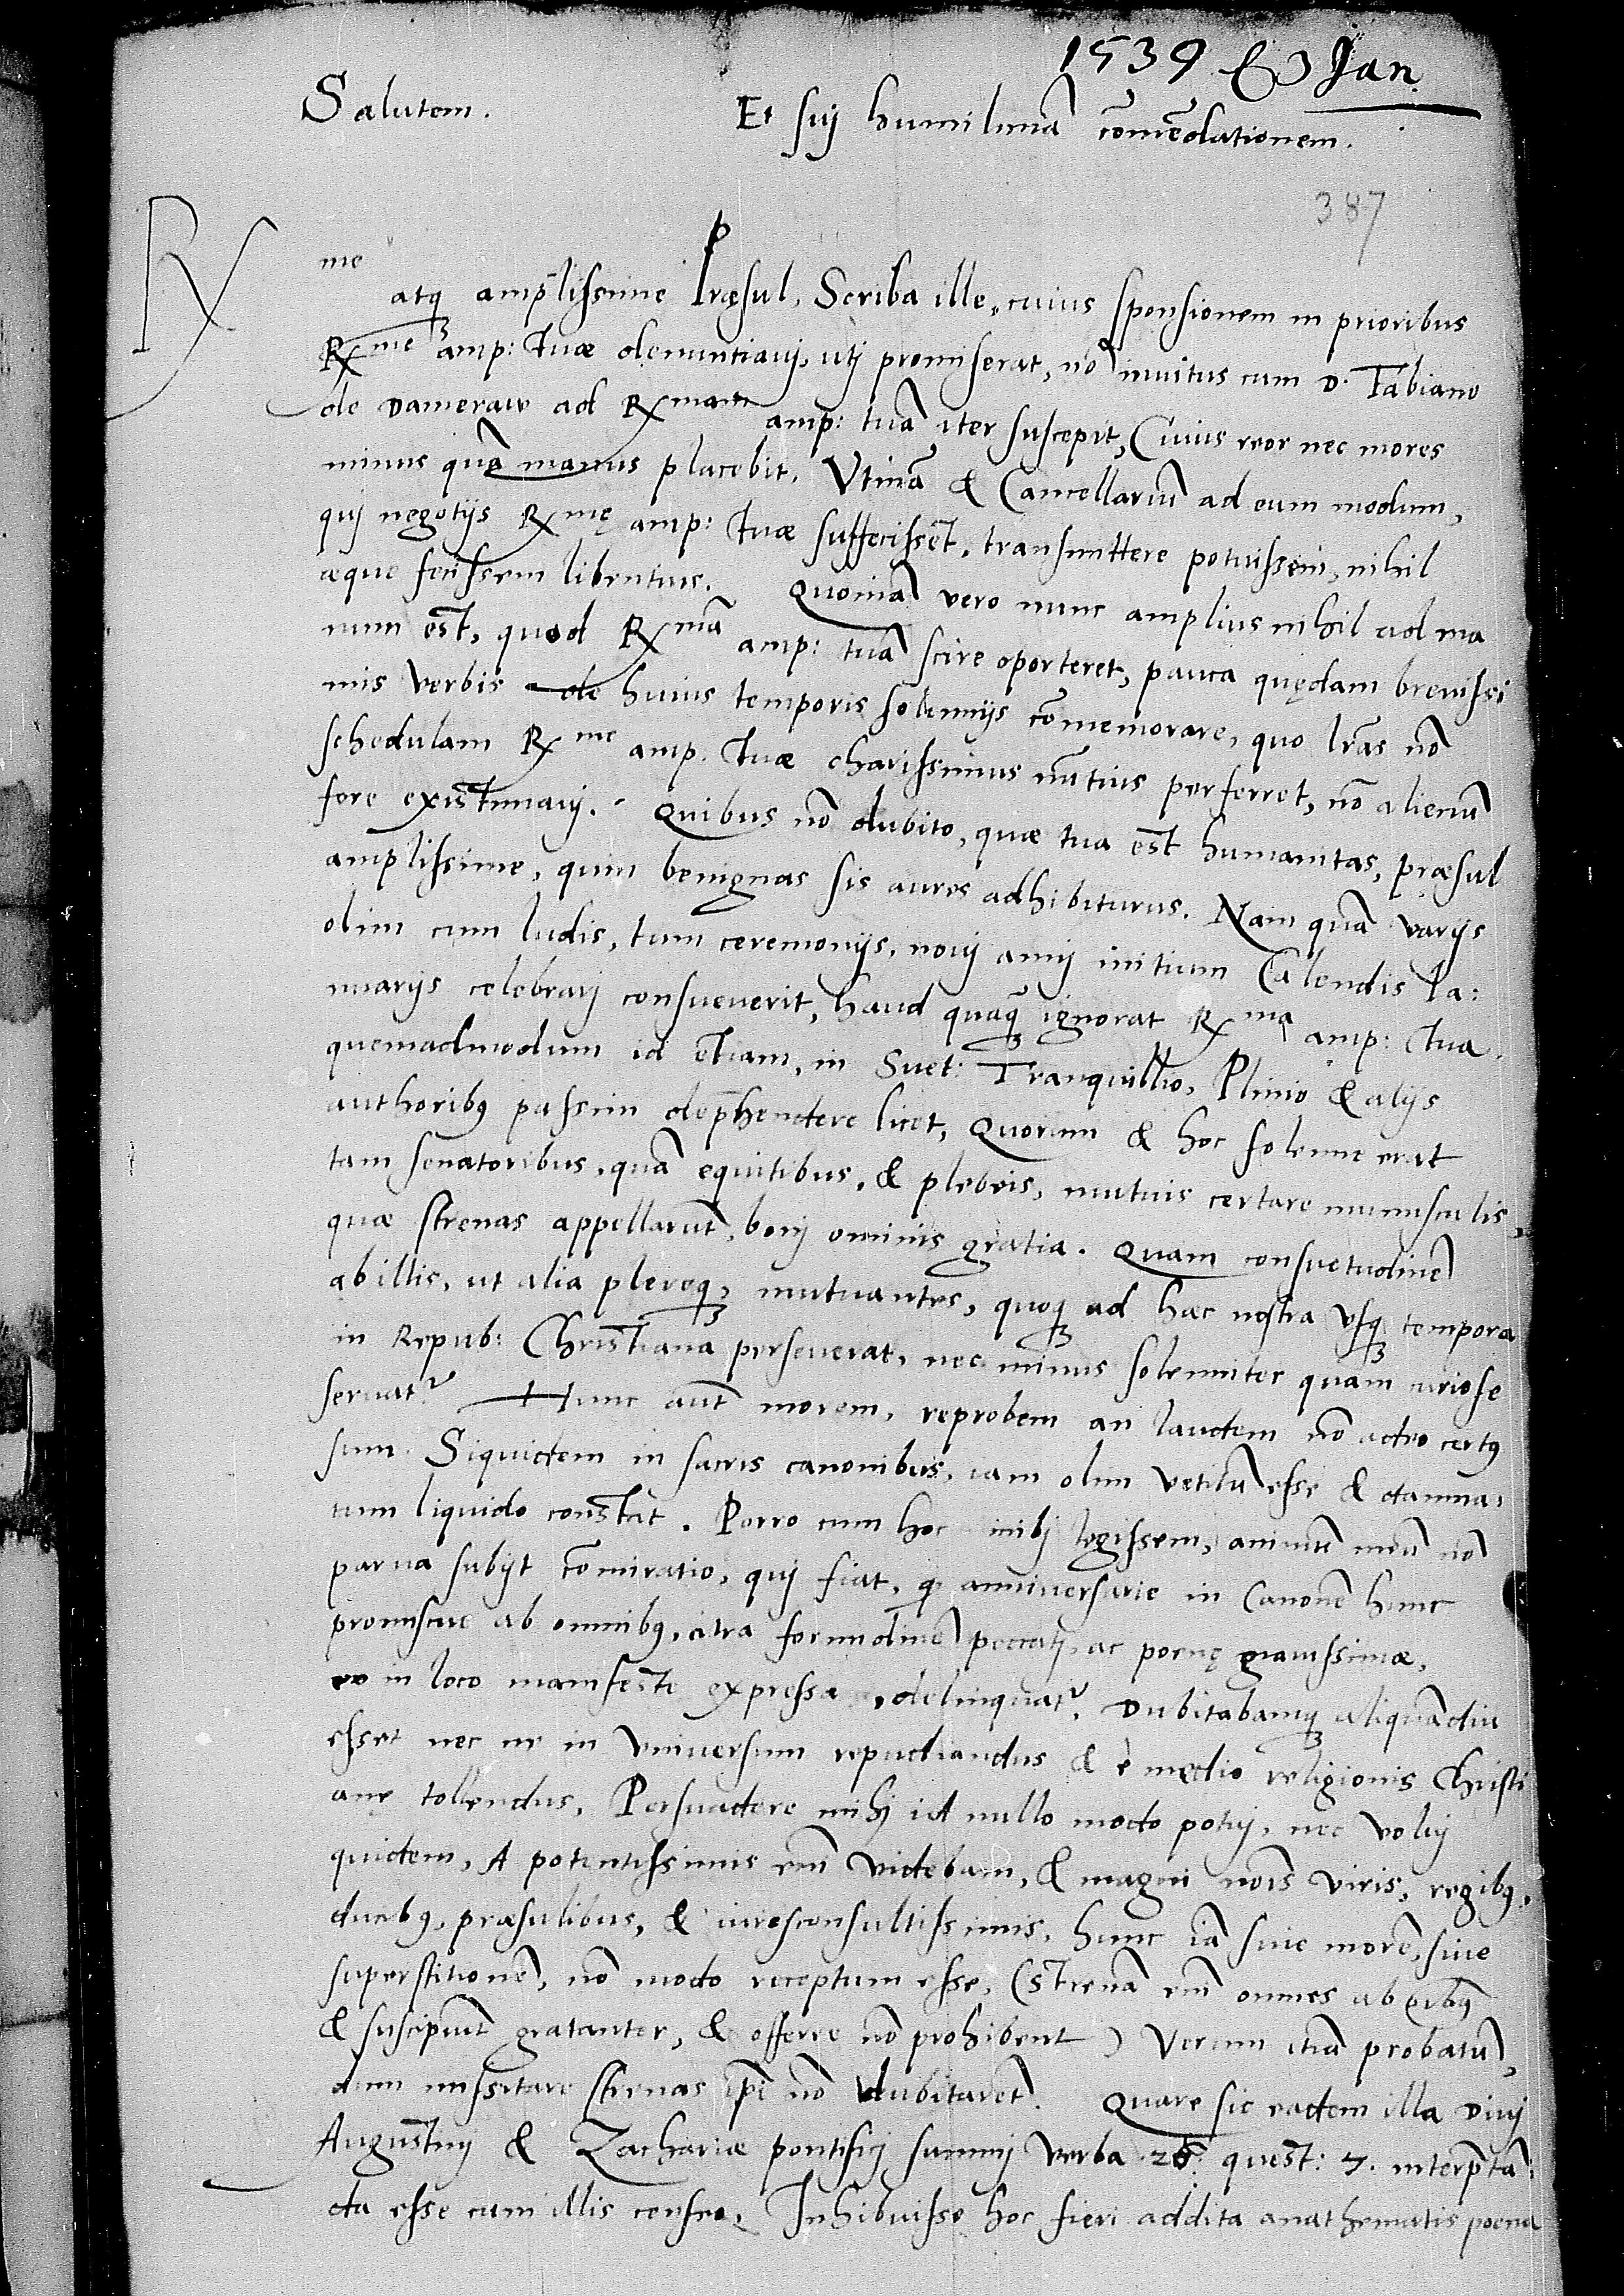 1539 3 Jan
Salutem. Et sui humilimā cōmēdationem.
387
R
me atq amplissime Præsul, Scriba ille, cuius sponsionem in prioribus
Rme amp: tuæ denuntiavi, uti promiserat, nō invitus cum D. Fabiano
de Dameraw ad Rmam amp: tuā iter suscepit, Cuius reor nec mores
minus quā manus placebit. Utinā & Cancellariū ad eum modum,
qui negotijs Rmę amp: tuæ suffecisset, transmittere potuissem, nihil
æque fecissem libentius. Quoniā vero nunc amplius nihil ad ma
num est, quod Rmā amp: tuā scire oporteret, pauca quędam brevissi
mis verbis de huius temporis solennijs cōmemorare, quo lras nō
schedulam Rme amp. tuæ charissimus nūtius perferret, nō alienū
fore existimavi. Quibus nō dubito, quæ tua est humanitas, præsul
amplissime, quin benignas sis aures adhibiturus. Nam quā varijs
olim cum ludis, tum ceremonijs, novi anni initium Calendis Ia:
nuarijs celebrari consueverit, haud quaq ignorat Rma amp: tua.
quemadmodum id etiam, in Suet: Tranquillo, Plinio & alijs
authoribq passim dephendere licet, Quorum & hoc solenne erat
tam senatoribus, quā equitibus, & plebeis, mutuis certare munusculis,
quæ strenas appellarūt, boni ominis gratia. Quam consuetudinē
ab illis, ut alia pleraq, mutuantes, quoq ad hæc nostra usq tempora
in Repub: Christiana perseverat, nec minus solenniter quàm curiose
servatr. Hunc aūt morem, reprobem an laudem nō adeo certq
sum. Siquidem in sacris canonibus, iam olim vetitū esse & damna,
tum liquido constat. Porro cum hoc inibi legissem, animū meū nō
parva subijt cōmiratio, qui fiat, q anniversarie in Canonē hunc
promiscue ab omnibq, citra formidinē peccati, ac poenę gravissimæ,
eo in loco manifeste expressæ, delinquatr. Dubitabamq aliquādiu
esset nec ne in universum repudiandus & è medio religionis Christi
anę tollendus, Persuadere mihi id nullo modo potui, nec volui
quidem, A potentissimis em videbam, & magni nois viris, regibq,
ducibq, præsulibus, & iuresconsultissimis, hunc iā sive morē, sive
superstitionē, nō modo receptum esse, (strenā em omnes ab oībq
& suscipiūt gratanter, & offerre nō prohibent) Verum etiā probatū,
dum missitare strenas ipi nō dubitarēt. Quare sic eadem illa Divi
Augustini & Zachariæ pontificij summi verba 26. quest: 7. interpta:
da esse cum illis censeo, Inhibuisse hoc fieri addita anathematis poena